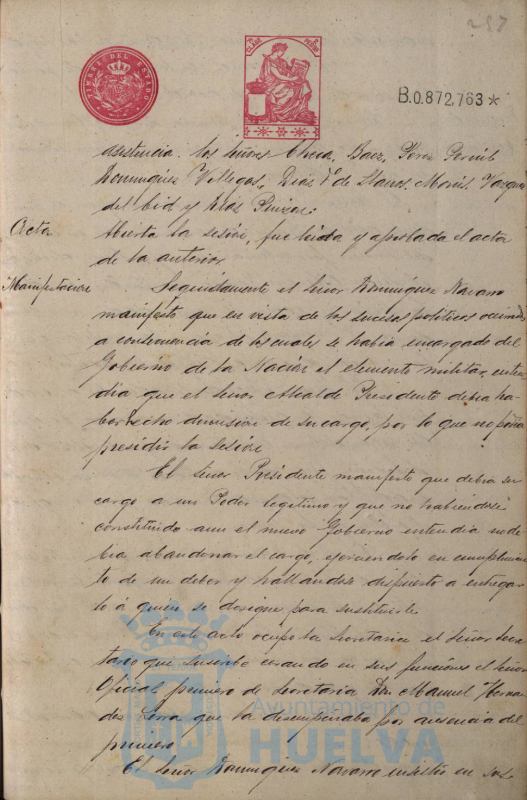 257
TIMBRE DEL ESTADO
B.0.872,763 *
asistencia los Señores Checa, Baez, Perez
Dominguez Villegas, Dias Fz de Llanos, Moril. Vazquez
del Cid y Blás
Acta
Abierta la sesión, fue leida y aprobada el acta
de la anterior
Manifestacion
Seguidamente el Señor Dominguez Navarro
manifestó que en vista de los sucesos politicos ocurridos
a consecuencia de los cuales se habia encargado del
Gobierno de la Nación el elemento militar, enten-
dia que el Señor Alcalde Presidente debia ha-
ber hecho dimision de su cargo, por lo que no podia
presidir la sesión
El Señor Presidente manifestó que debia su
cargo a un Poder legitimo y que no habiendose
constituido aun el nuevo Gobierno entendia no de-
bia abandonar el cargo, ejerciendolo en cumplimien-
to de un deber y hallandose dispuesto a entregar-
lo á quien se designe para sustituirle
En este acto ocupó la Secretaria el Señor Secre-
tario que suscribe cesando en sus funciones el Señor
Oficial primero de Secretaria Don Manuel Hernan-
dez Serra que la desempeñaba por ausencia del
primero
El Señor Dominguez Navarro insistió en sus
Ayuntamiento de
HUELVA